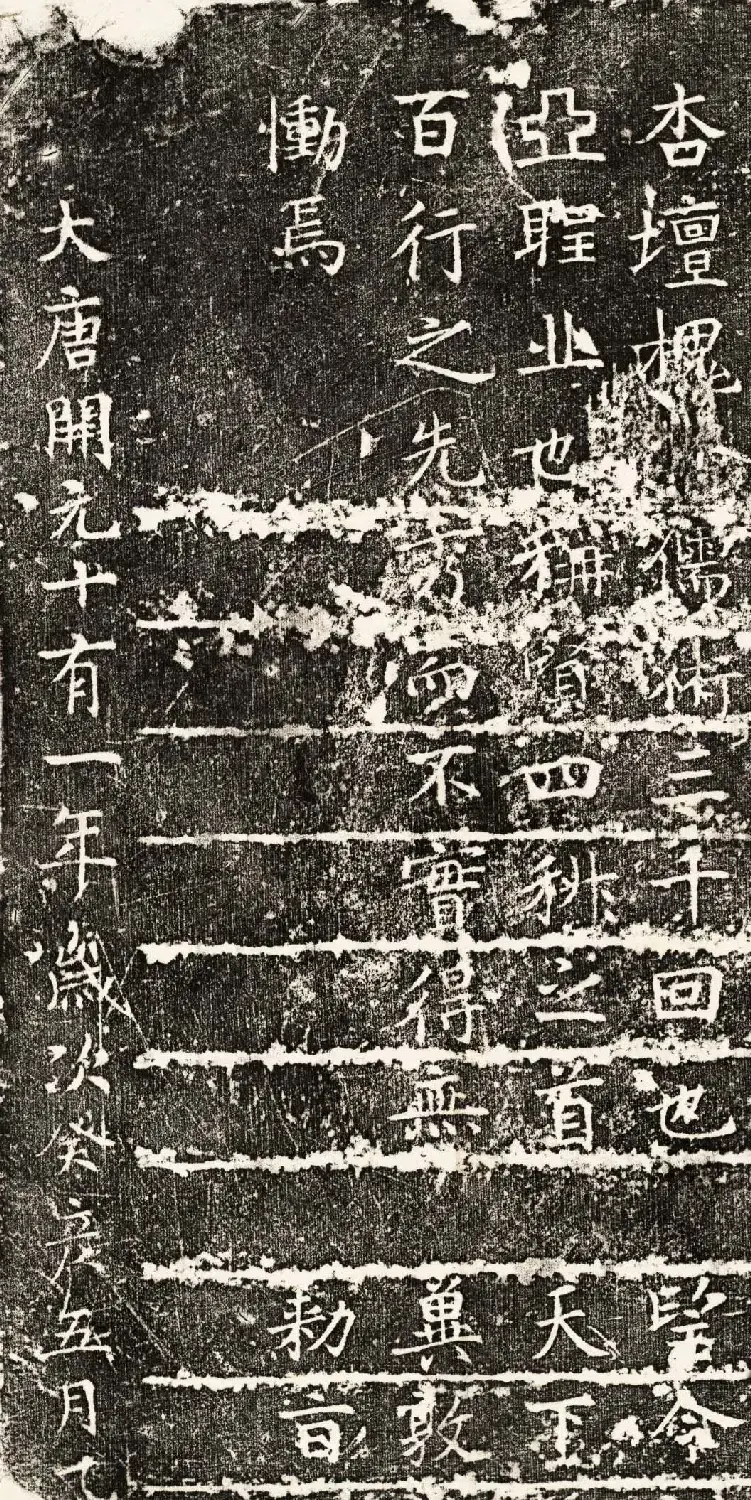 杏壇槐儒術三千回也命
亞聖丘也稱賢四科之首天
百行之先秀而不實得無冀敦
慟焉勅旨
大唐開元十有一年歲次癸亥五月七